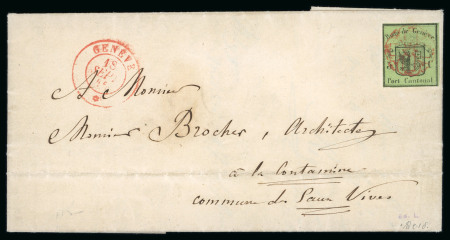 GENÈVE
18
SEPT
Poste de Genève
Port Cantonal
A Monsieur
Monsieur Brocher, Architecte
à la Contamine
commune de Eaux Vives